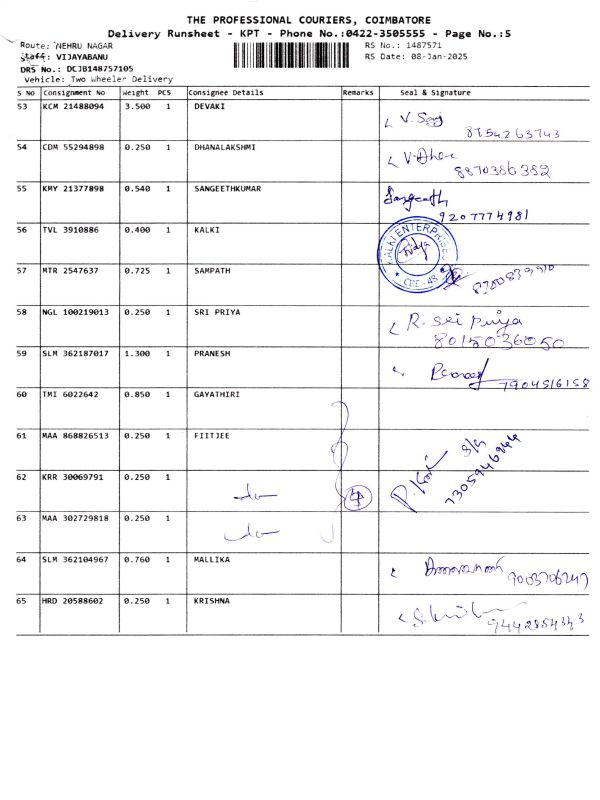 THE PROFESSIONAL COURIERS, COIMBATORE
Delivery Runsheet - KPT - Phone No.:0422-3505555 - Page No.:5
Route: NEHRU NAGAR RS No.: 1487571
Staff: VIJAYABANU RS Date: 08-Jan-2025
DRS No.: DCJB148757105
Vehicle: Two Wheeler Delivery
S No Consignment No Weight PCS Consignee Details Remarks Seal & Signature
53 KCM 21488094 3.500 1 DEVAKI
8754263743
54 CDM 55294898 0.250 1 DHANALAKSHMI
8870386382
55 KMY 21377898 0.540 1 SANGEETHKUMAR Sangeeth
9207774981
56 TVL 3910886 0.400 1 KALKI KALKI ENTERPRISES
57 MTR 2547637 0.725 1 SAMPATH
58 NGL 100219013 0.250 1 SRI PRIYA R. Sri priya
8015036050
59 SLM 362187017 1.300 1 PRANESH
7904516158
60 TMI 6022642 0.850 1 GAYATHIRI
61 MAA 868826513 0.250 1 FIITJEE
62 KRR 30069791 0.250 1
63 MAA 302729818 0.250 1
64 SLM 362104967 0.760 1 MALLIKA
65 HRD 20588602 0.250 1 KRISHNA